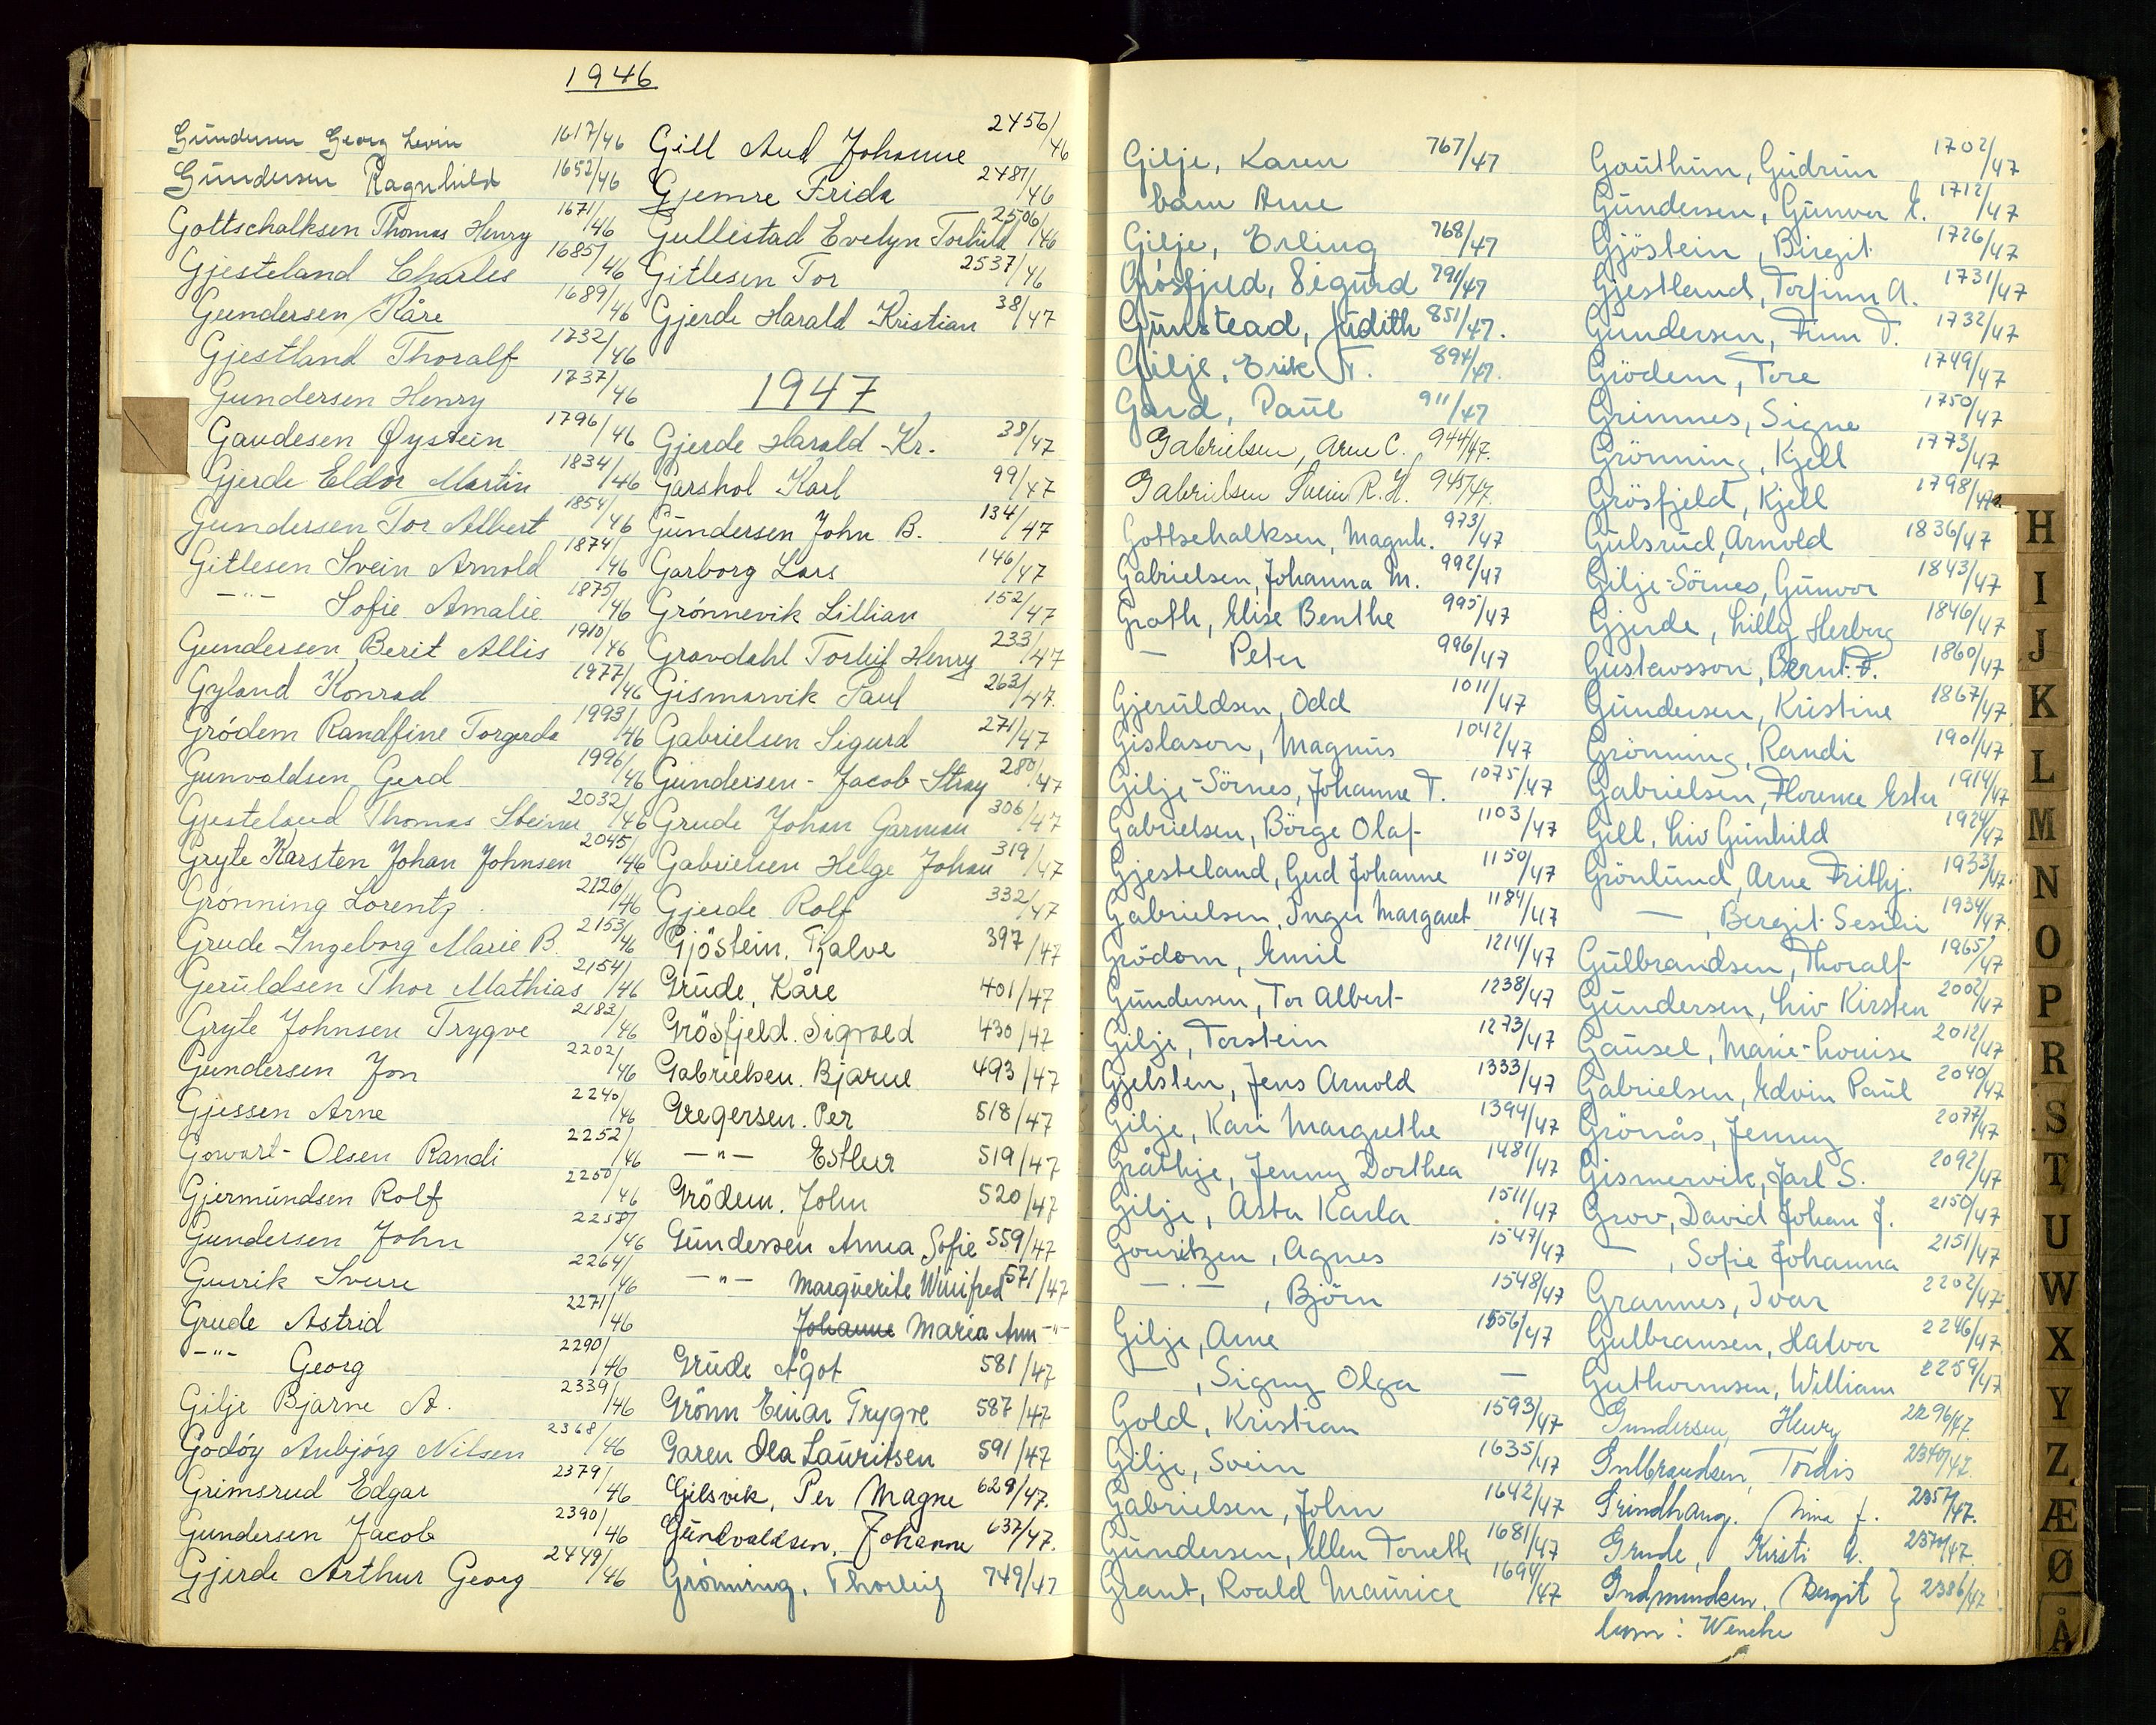 1946
Gundersen Georg Levin 1617/46
Gundersen Ragnhild 1652/46
Gottschalksen Thomas Henry 1671/46
Gjesteland Charles 1685/46
Gundersen Kåre 1689/46
Gjestland Thoralf 1732/46
Gundersen Henry 1737/46
Gaudesen Øystein 1796/46
Gjerde Eldor Martin 1834/46
Gundersen Tor Albert 1854/46
Gitlesen Svein Arnold 1874/46
-"- Sofie Amalie 1875/46
Gundersen Berit Allis 1910/46
Gyland Konrad 1977/46
Grödem Randfine Torgerda 1993/46
Gunvaldsen Gerd 1996/46
Gjesteland Thomas Steinar 2032/46
Gryte Karsten Johan Johnsen 2045/46
Grönning Lorentz 2126/46
Grude Ingeborg Marie B. 2153/46
Geruldsen Thor Mathias 2154/46
Gryte Johnsen Trygve 2183/46
Gundersen Jon 2202/46
Gjessen Arne 2240/46
Gowart-Olsen Randi 2252/46
Gjermundsen Rolf 2250/46
Gundersen John 2258/46
Gusrik Sverre 2264/46
Grude Astrid 2271/46
-"- Georg 2290/46
Gilje Bjarne A. 2339/46
Godöy Anbjörg Nilsen 2368/46
Grimsrud Edgar 2379/46
Gundersen Jacob 2390/46
Gjerde Arthur Georg 2449/46
Gill Aud Johanne 2456/46
Gjemre Frida 2481/46
Gullestad Evelyn Torhild 2506/46
Gitlesen Tor 2537/46
Gjerde Harald Kristian 38/47
1947
Gjerde Harald Kr. 38/47
Garshol Karl 99/47
Gundersen John B. 134/47
Garborg Lars 146/47
Grönnevik Lillian 152/47
Gravdahl Torleif Henry 233/47
Gismarvik Paul 263/47
Gabrielsen Sigurd 271/47
Gundersen - Jacob Stray 280/47
Grude Johan Garman 306/47
Gabrielsen Helge Johan 319/47
Gjerde Rolf 332/47
Gjöstein, Tjalve 397/47
Grude, Kåre 401/47
Grösfjeld. Sigvald 430/47
Gabrielsen. Bjarne 493/47
Gregersen. Per 518/47
-"- Esther 519/47
Grödem. John 520/47
Gundersen Anna Sofie 559/47
-"- Marguerite Winifred 571/47
Johanne Maria Ann -"-
Grude Ågot 581/47
Grönn Einar Trygve 587/47
Garen Ola Lauritsen 591/47
Gilsvik, Per Magne 629/47.
Gundvaldsen, Johanne 637/47.
Grönning, Thorleif 749/47
Gilje, Karen 767/47
barn Arne
Gilje, Erling 768/47
Grösfjeld, Sigurd 791/47
Gunstead, Judith 851/47.
Gilje, Erik T. 894/47.
Gard, Paul 911/47
Gabrielsen, Arne C. 944/47.
Gabrielsen Svein R. H. 945/47.
Gottschalksen, Magnh. 973/47
Gabrielsen, Johanna M. 992/47
Groth, Elise Benthe 995/47
- Peter 996/47
Gjeruldsen, Odd 1011/47
Gislason, Magnus 1042/47
Gilje-Sörnes, Johanne T. 1075/47
Gabrielsen, Börge Olaf 1103/47
Gjesteland, Gerd Johanne 1150/47
Gabrielsen, Inger Margaret 1184/47
Grödem, Emil 1214/47
Gundersen, Tor Albert 1238/47
Gilje, Torstein 1273/47
Gjelsten, Jens Arnold 1333/47
Gilje, Kari Margrethe 1394/47
Gråthje, Jenny Dorthea 1481/47
Gilje, Asta Karla 1511/47
Gouritzen, Agnes 1547/47
-"-, Björn 1548/47
Gilje, Arne 1556/47
-, Signy Olga -
Gold, Kristian 1593/47
Gilje, Svein 1635/47
Gabrielsen, John 1642/47
Gundersen, Ellen Tonette 1681/47
Grant, Roald Maurice 1694/47
Gauthun, Gudrun 1702/47
Gundersen, Gunvor E. 1712/47
Gjöstein, Birgit 1726/47
Gjestland, Torfinn A. 1731/47
Gundersen, Finn T. 1732/47
Grödem, Tore 1749/47
Grimnes, Signe 1750/47
Grönning, Kjell 1773/47
Grösfjeld, Kjell 1798/47
Gulsrud, Arnold 1836/47
Gilje-Sörnes, Gunvor 1843/47
Gjerde, Lilly Herborg 1846/47
Gustavsson, Bernt F. 1860/47
Gundersen, Kristine 1867/47
Grönning, Randi 1901/47
Gabrielsen, Florence Ester 1914/47
Gill, Liv Gunhild 1924/47
Grönlund, Arne Frithj. 1933/47
-, Bergit Sesilie 1934/47
Gulbrandsen, Thoralf 1965/47
Gundersen, Liv Kirsten 2002/47
Gausel, Marie-Louise 2012/47
Gabrielsen, Edvin Paul 2040/47
Grönås, Jenny 2077/47
Gismervik, Jarl S. 2092/47
Grov, David Johan J. 2150/47
-, Sofie Johanna 2151/47
Grannes, Ivar 2202/47
Gulbransen, Halvor 2246/47
Guthormsen, William 2259/47
Gundersen, Henry 2296/47.
Gulbrandsen, Tordis 2340/47.
Grindhaug. Nina J. 2357/47.
Grude, Kirsti A. 2374/47.
Gudmundsen. Bergit } 2386/47
barn: Wenche
H
I
J
K
L
M
N
O
P
R
S
T
U
W
X
Y
Z
Æ
Ø
Å